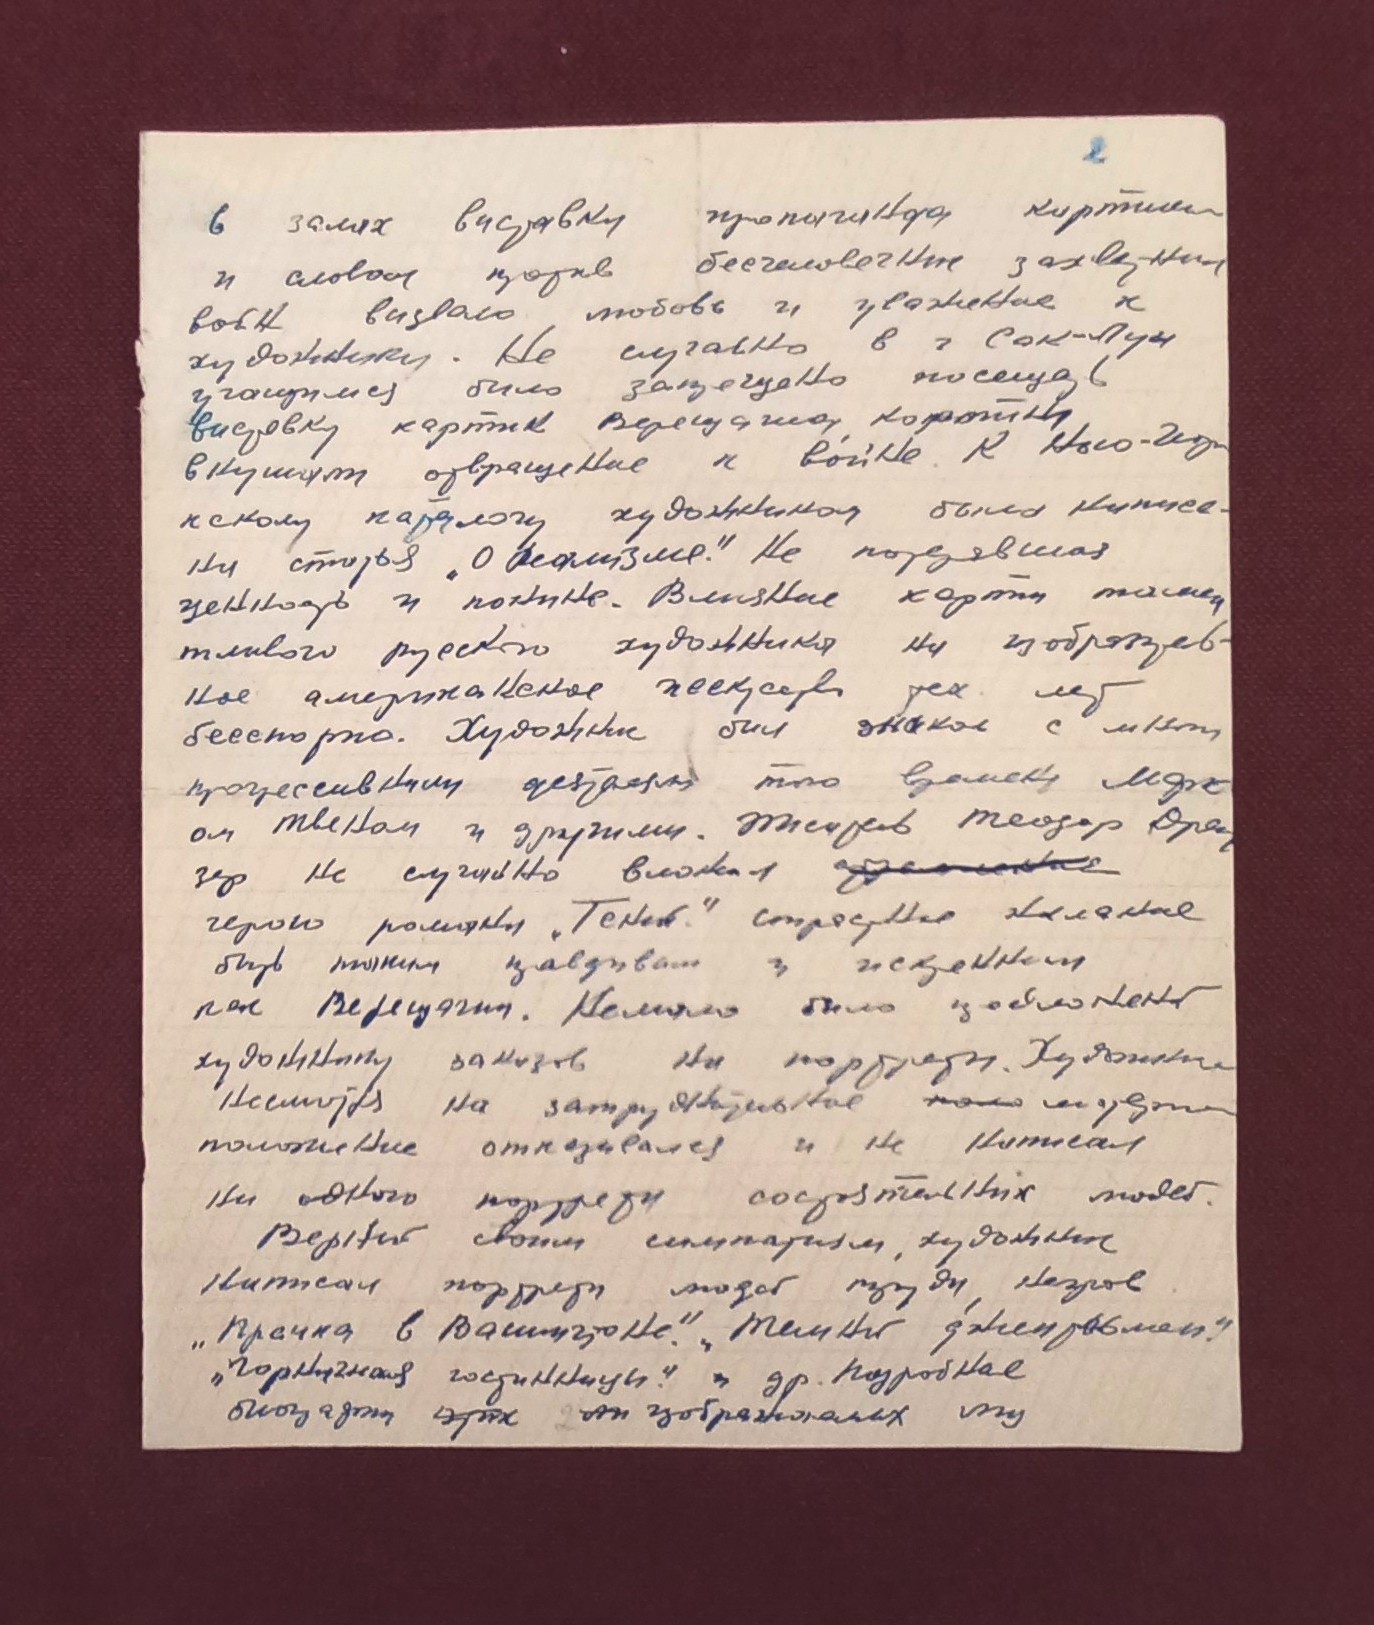 2
в залах виставки пропаганда картинам
и словом против бесчеловечние захватним
войн визвало любовь и уважение к
художнику. Не случайно в г Сан-Луи
учащимся било запрещено посещать
виставку картин Верещагина, картини
внушали отвращение к войне. К Нью-Йор
кскому каталогу художником была написа-
на статья „О Реализме." Не потерявшая
ценность и понине. Влияние карти талан
тливого руского художника на изобразтев-
ное американское исскуство тех лет
бесспорно. Художник бил знаком с многи
прогрессивними деятелями того времени Марк
ом Твеном и другими. Писатель Теодор Драй
зер не случайно вложил
герою романа „Гений." страстние желание
быть таким правдивим и искренним
как Верещагин. Немало било предложений
художнику заказов на портрети. Художник
несмотря на затруднительние мат
положение отказивался и не написал
ни одного портрети состоятельних людей.
Верний своим симпатиям, художник
написал портрети людей труда, негров
„Прачка в Вашингтоне." „Темний джентельмен."
„Горничная гостинници." и др. Подробние
биографии этих изображаемых им